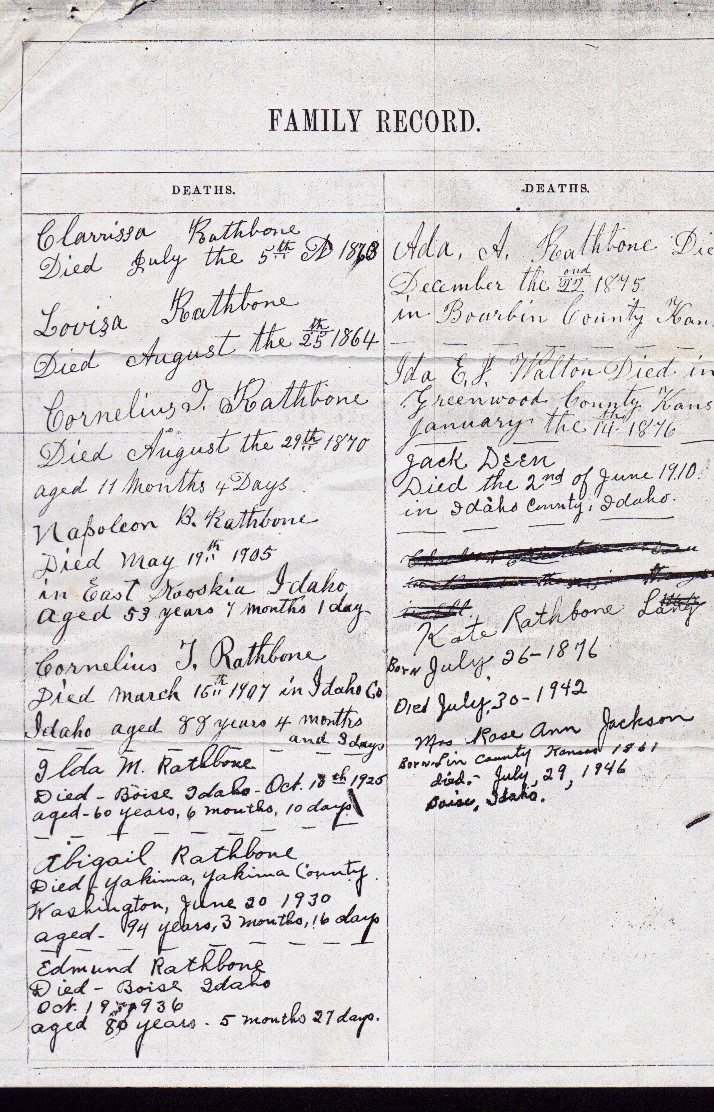 FAMILY RECORD.
DEATHS.
Clarrissa Rathbone
Died July the 5th AD
Loviza Rathbone
Died August the 25th 1864
Cornelius T. Rathbone
Died August the 29th 1870
aged 11 Months 4 Days
Napoleon B. Rathbone
Died May 19th 1905
in East Kooskia Idaho
aged 53 years 7 months 1 day
Cornelius T. Rathbone
Died March 16th 1907 in Idaho Co
Idaho aged 88 years 4 months
and 3 days
Ilda M. Rathbone
Died - Boise Idaho - Oct. 18th 1925
aged - 60 years, 6 months, 10 days
Abigail Rathbone
Died - Yakima, Yakima County
Washington, June 20 1930
aged - 94 years, 3 months, 16 days
Edmund Rathbone
Died - Boise Idaho
Oct. 19, 1936
aged years - 5 months 27 days.
DEATHS.
Ada, A. Rathbone Die
December the 22nd 1875
in Bourbin County Kan
Ida E. J. Walton Died in
Greenwood County Kans
January the 14th 1876
Jack Deen
Died the 2nd of June 1910.
in Idaho County, Idaho.
Kate Rathbone
Born July 26 - 1876
Died July 30 - 1942
Mrs Rose Ann Jackson
Born Lin County Kansas 1861
died - July, 29, 1946
Boise, Idaho.